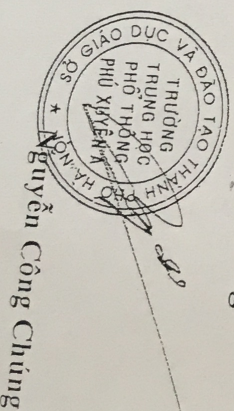 SỞ GIÁO DỤC VÀ ĐÀO TẠO THÀNH PHỐ HÀ NỘI ★
TRƯỜNG
TRUNG HỌC
PHỔ THÔNG
PHÚ XUYÊN A
Nguyễn Công Chúng